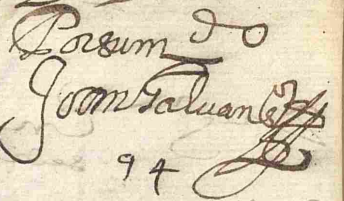 Por su m.do
Joan Galvan
94